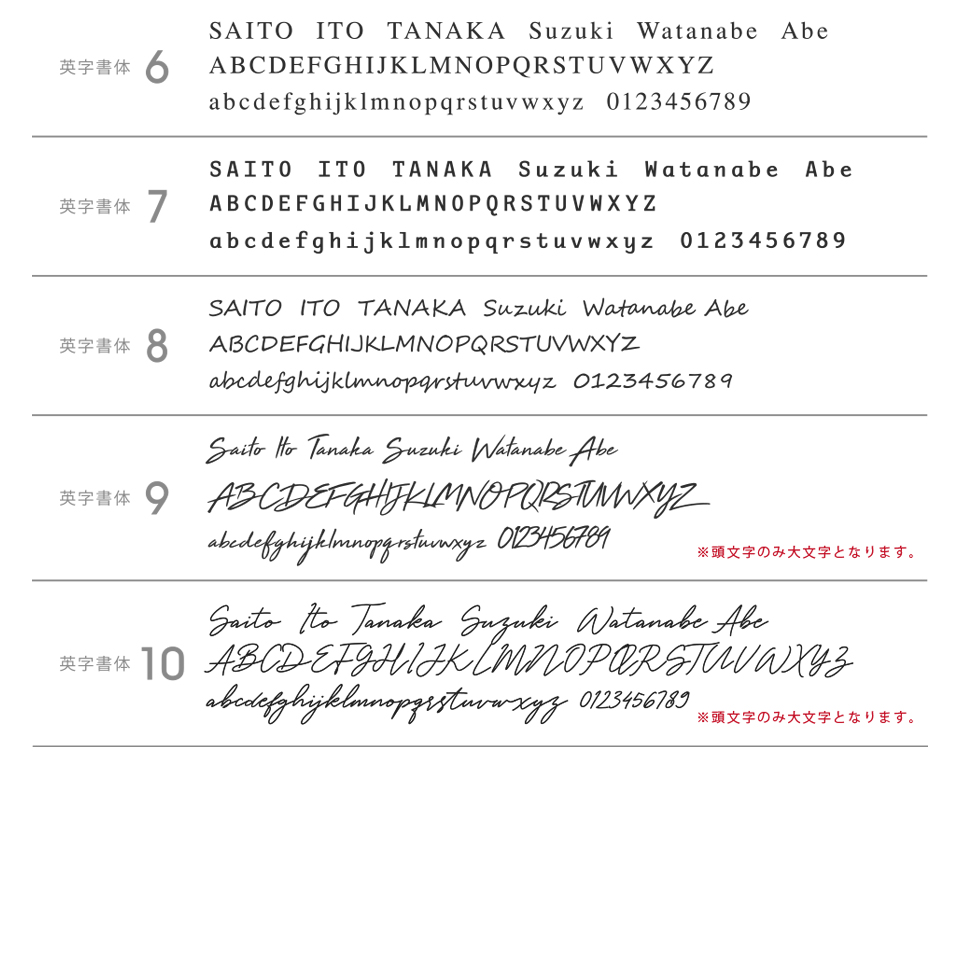 英字書体 6
SAITO ITO TANAKA Suzuki Watanabe Abe
ABCDEFGHIJKLMNOPQRSTUVWXYZ
abcdefghijklmnopqrstuvwxyz 0123456789
英字書体 7
SAITO ITO TANAKA Suzuki Watanabe Abe
ABCDEFGHIJKLMNOPQRSTUVWXYZ
abcdefghijklmnopqrstuvwxyz 0123456789
英字書体 8
SAITO ITO TANAKA Suzuki Watanabe Abe
ABCDEFGHIJKLMNOPQRSTUVWXYZ
abcdefghijklmnopqrstuvwxyz 0123456789
英字書体 9
Saito Ito Tanaka Suzuki Watanabe Abe
ABCDEFGHIJKLMNOPQRSTUVWXYZ
abcdefghijklmnopqrstuvwxyz 0123456789
※頭文字のみ大文字となります。
英字書体 10
Saito Ito Tanaka Suzuki Watanabe Abe
ABCDEFGHIJKLMNOPQRSTUVWXYZ
abcdefghijklmnopqrstuvwxyz 0123456789
※頭文字のみ大文字となります。